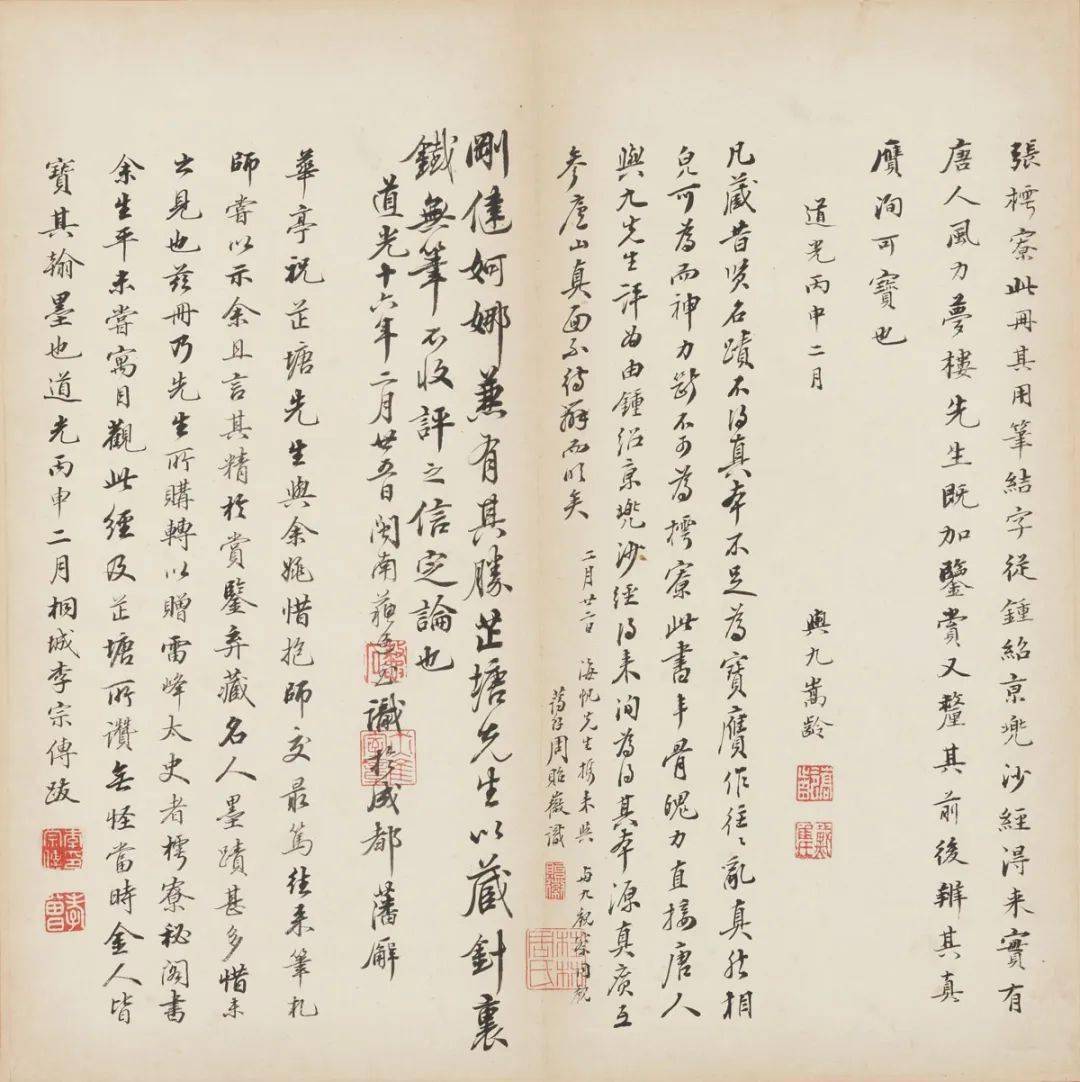 張樗寮此冊其用筆結字從鍾紹京兜沙經得来實有
唐人風力夢樓先生既加鑒賞又釐其前後辨其真
贗洵可寶也
道光丙申二月
與九嵩齡
凡藏昔賢名蹟不得真本不足為寶贗作往々亂真然相
皃可為而神力斷不可為樗寮此書丰骨魄力直接唐人
與九先生評為由鍾紹京兜沙經得来洵為得其本源真廣互
參廬山真面不待辭而明矣
二月廿日
海帆先生攜来與
與九觀察同觀
周貽徽識
剛健婀娜兼有其勝芷塘先生以藏針裏
鐵無筆不收評之信定論也
道光十六年二月廿五日閩南蘇廷玉識於成都藩廨
華亭祝芷塘先生與余姚惜抱師交最篤往来筆札
師嘗以示余且言其精於賞鑒弆藏名人墨蹟甚多惜未
之見也茲冊乃先生所購轉以贈雷峰太史者樗寮秘閣書
余生平未嘗寓目觀此經及芷塘所讚無怪當時金人皆
寶其翰墨也道光丙申二月桐城李宗傳跋